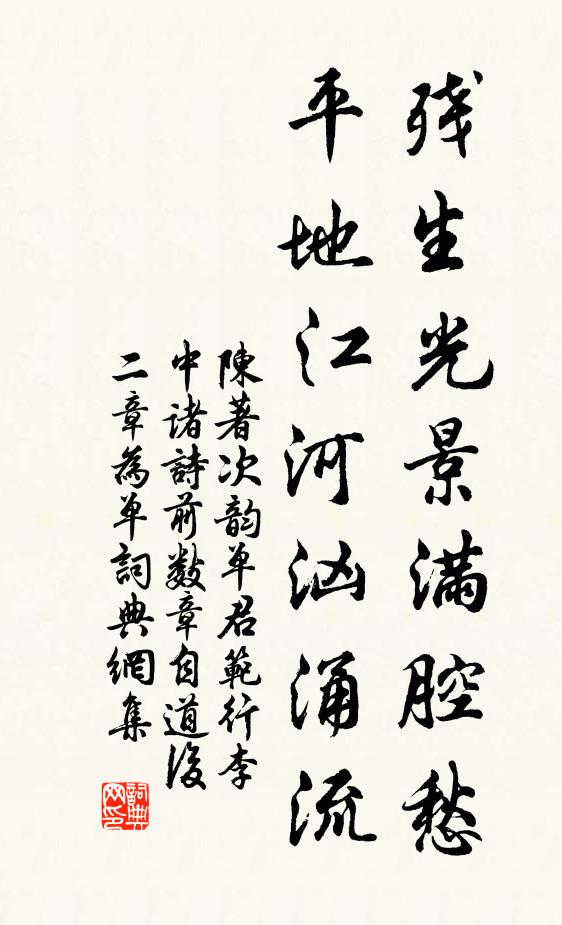 残生光景满腔愁
平地江河汹涌流
陳著次韵单君範行李
中诸詩前数章自道後
二章為单詞典網集
詞典网印